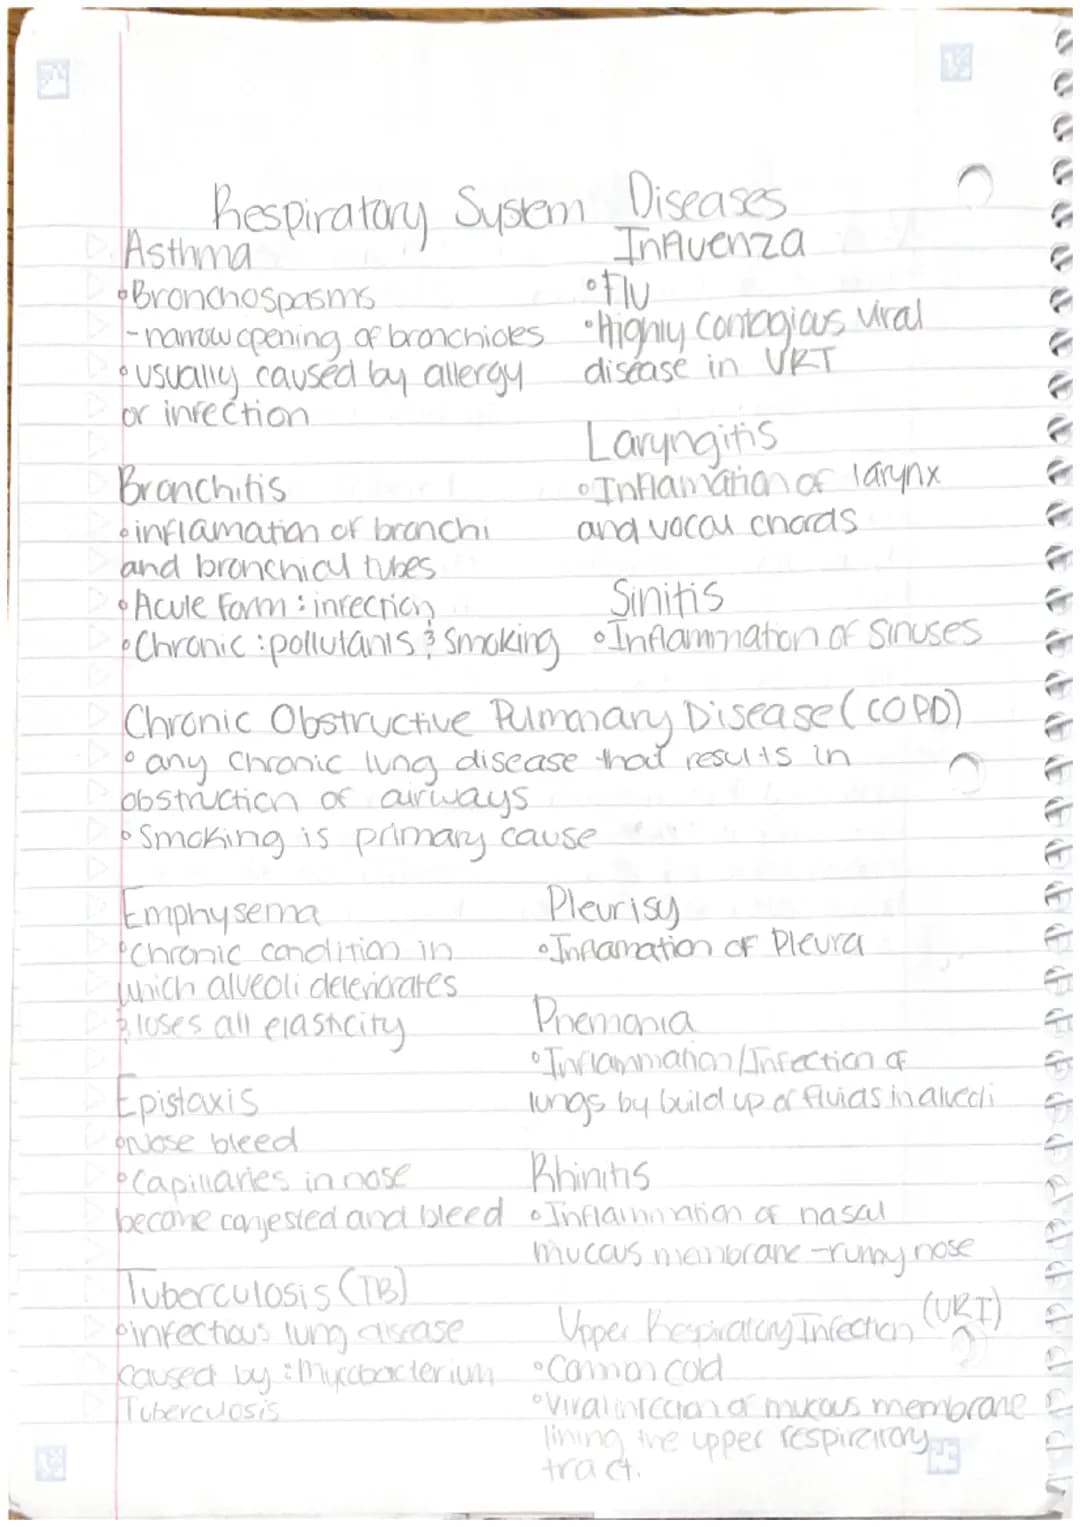 Respiratory System Diseases
Asthma
•Bronchospasms
-narrow opening of bronchioles
•usually caused by allergy
or infection
Bronchitis
•inflamation of bronchi
and bronchical tubes
•Acute Form: infection
•Chronic: pollutants & Smoking
Influenza
•Flu
•Highly contagious viral
disease in URT
Laryngitis
•Inflamation of larynx
and vocal chords
Sinitis
•Inflammation of Sinuses
Chronic Obstructive Pulmonary Disease (COPD)
•any Chronic lung disease that results in
obstruction of airways
•Smoking is primary cause
Emphysema
•Chronic condition in
which alveoli deteriorates
& loses all elasticity
Epistaxis
•Nose bleed
•Capillaries in nose
become congested and bleed
Tuberculosis (TB)
•infectious lung disease
caused by: Mycobacterium
Tuberculosis
Pleurisy
•Inflamation of Pleura
Pnemonia
•Inflammation/Infection of
lungs by build up of fluids in alveoli
Rhinitis
•Inflammation of nasal
mucous membrane -runny nose
Upper Respiratory Infection (URI)
•Common cold
•Viral infection of mucous membrane
lining the upper respiratory
tract.